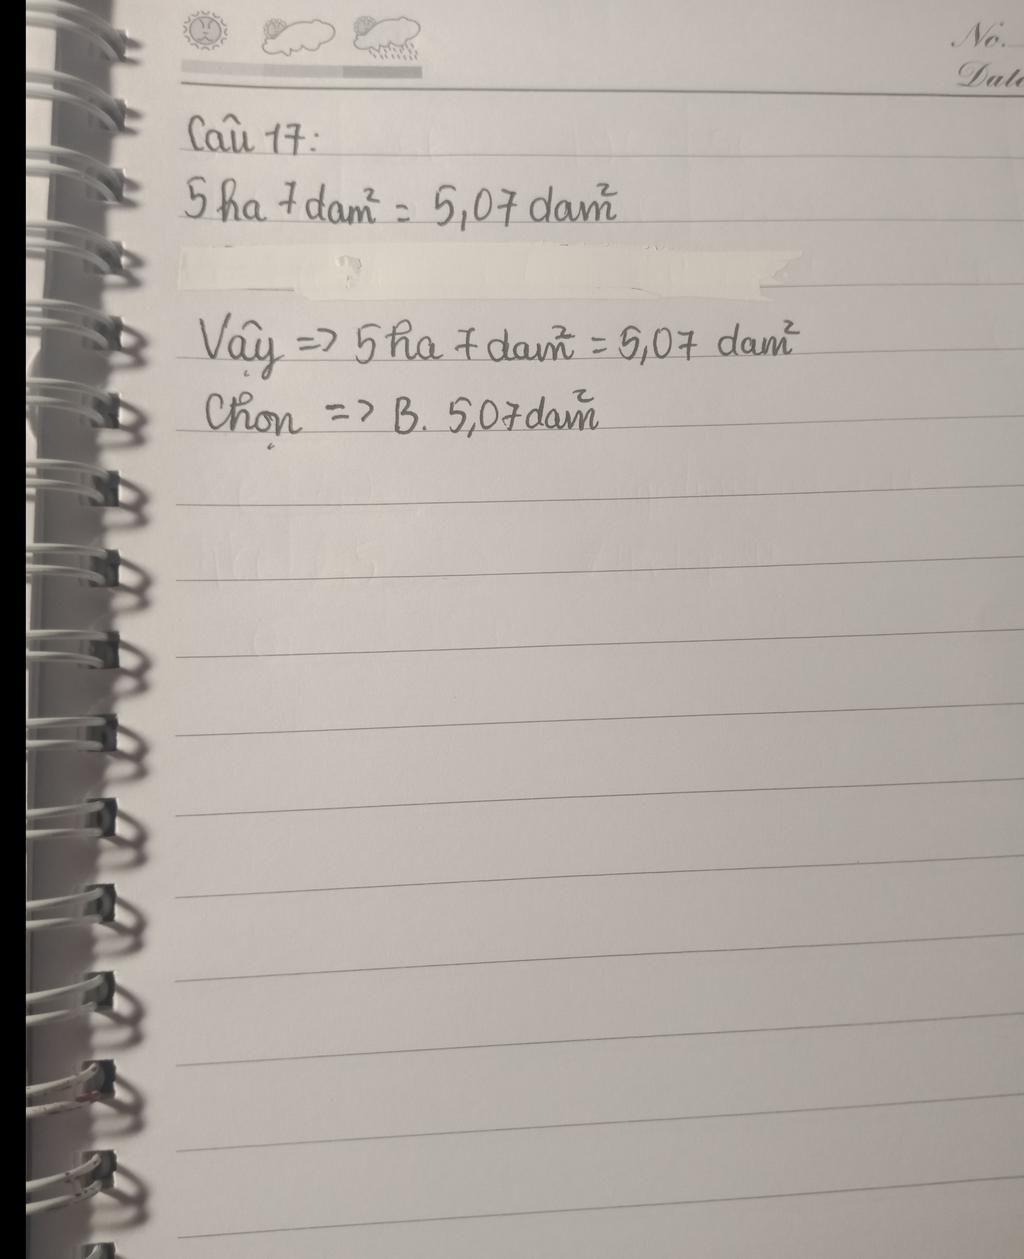 No.
Date
Câu 17:
5ha 7dam² = 5,07 dam²
Vậy => 5ha 7dam² = 5,07 dam²
Chọn => B. 5,07dam²